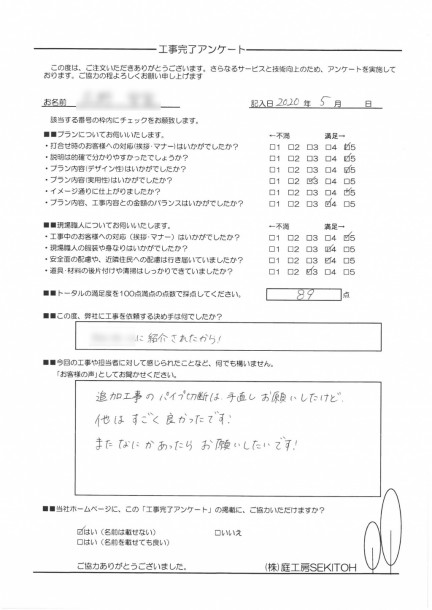 工事完了アンケート
この度は、ご注文いただきありがとうございます。さらなるサービスと技術向上のため、アンケートを実施して
おります。ご協力の程よろしくお願い申し上げます
お名前 記入日 2020 年 5 月 日
該当する番号の枠内にチェックをお願致します。
■■プランについてお伺いいたします。 ←不満 満足→
・打合せ時のお客様への対応(挨拶・マナー)はいかがでしたか? □1 □2 □3 □4 ☑5
・説明は的確で分かりやすかったでしょうか? □1 □2 □3 □4 ☑5
・プラン内容(デザイン性)はいかがでしたか? □1 □2 □3 □4 ☑5
・プラン内容(実用性)はいかがでしたか? □1 □2 ☑3 □4 □5
・イメージ通りに仕上がりましたか? □1 □2 □3 □4 ☑5
・プラン内容、工事内容との金額のバランスはいかがでしたか? □1 □2 □3 ☑4 □5
■■現場職人についてお伺いいたします。 ←不満 満足→
・工事中のお客様への対応(挨拶・マナー)はいかがでしたか? □1 □2 □3 □4 ☑5
・現場職人の服装や身なりはいかがでしたか? □1 □2 □3 ☑4 □5
・安全面の配慮や、近隣住民への配慮は行き届いていましたか? □1 □2 □3 ☑4 □5
・道具・材料の後片付けや清掃はしっかりできていましたか? □1 □2 ☑3 □4 □5
■■トータルの満足度を100点満点の点数で採点してください。 89 点
■■この度、弊社に工事を依頼する決め手は何でしたか?
に紹介されたから!
■■今回の工事や担当者に対して感じられたことなど、何でも構いません。
「お客様の声」としてお聞かせください。
追加工事のパイプ切断は手直しお願いしたけど、
他はすごく良かったです!
またなにかあったらお願いしたいです!
■■当社ホームページに、この「工事完了アンケート」の掲載に、ご協力いただけますか?
☑はい(名前は載せない) □いいえ
□はい(名前を載せても良い)
ご協力ありがとうございました。 (株)庭工房SEKITOH